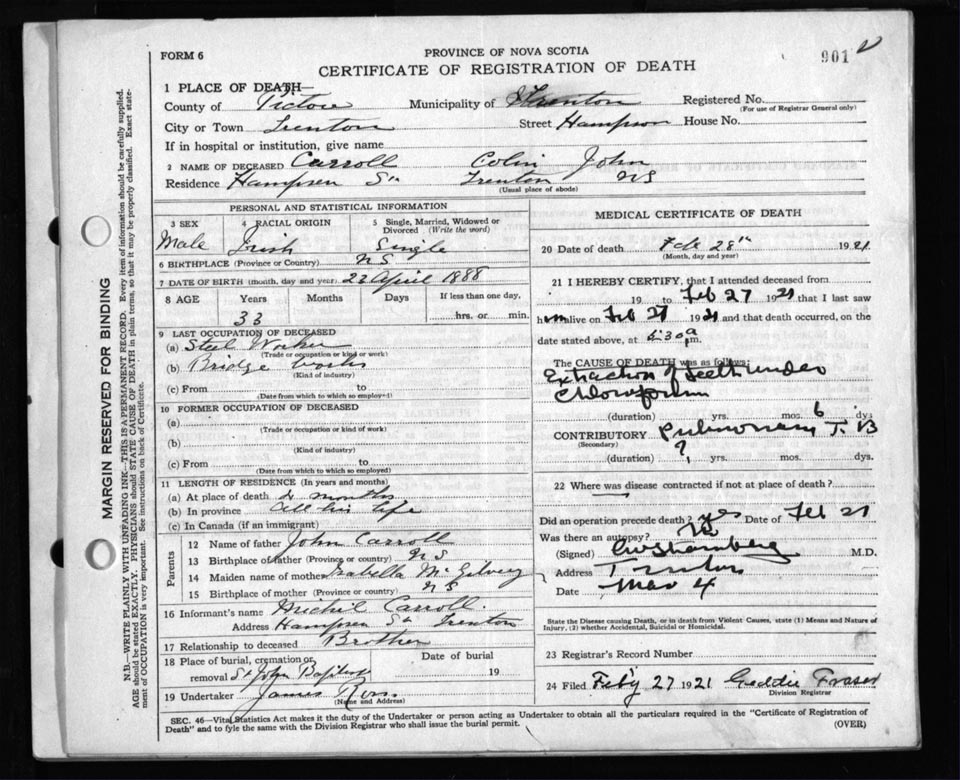 FORM 6
PROVINCE OF NOVA SCOTIA
901
CERTIFICATE OF REGISTRATION OF DEATH
1 PLACE OF DEATH—
County of Pictou Municipality of Trenton Registered No.
(For use of Registrar General only)
City or Town Trenton Street Hampson House No.
If in hospital or institution, give name
2 NAME OF DECEASED Carroll Colin John
Residence Hampsen St Trenton NS
(Usual place of abode)
PERSONAL AND STATISTICAL INFORMATION
3 SEX 4 RACIAL ORIGIN 5 Single, Married, Widowed or Divorced (Write the word)
Male Irish Single
6 BIRTHPLACE (Province or Country) NS
7 DATE OF BIRTH (month, day and year) 22 April 1888
8 AGE Years Months Days If less than one day,
33 hrs. or min.
9 LAST OCCUPATION OF DECEASED
(a) Steel Worker
(Trade or occupation or kind or work)
(b) Bridge works
(Kind of industry)
(c) From to
(Date from which to which so employed)
10 FORMER OCCUPATION OF DECEASED
(a)
(Trade or occupation or kind of work)
(b)
(Kind of industry)
(c) From to
(Date from which to which so employed)
11 LENGTH OF RESIDENCE (In years and months)
(a) At place of death months
(b) In province all his life
(c) In Canada (if an immigrant)
Parents
12 Name of father John Carroll
13 Birthplace of father (Province or country) NS
14 Maiden name of mother Isabella McGilvey
15 Birthplace of mother (Province or country) NS
16 Informant's name Michil Carroll.
Address Hampsen St Trenton
17 Relationship to deceased Brother
18 Place of burial, cremation or removal St John Baptist Date of burial 19
19 Undertaker James Ross
(Name and Address)
MEDICAL CERTIFICATE OF DEATH
20 Date of death Feb 28th 1921
(Month, day and year)
21 I HEREBY CERTIFY, that I attended deceased from
19 to Feb 27 1921 that I last saw
him alive on Feb 27 1921 and that death occurred, on the
date stated above, at 30 a m.
The CAUSE OF DEATH was as follows:
Extraction of Teeth under
Chloroform
(duration) yrs. mos. 6 dys
CONTRIBUTORY Pulmonary T.B
(Secondary)
(duration) ? yrs. mos. dys.
22 Where was disease contracted if not at place of death?
Did an operation precede death? yes Date of Feb 21
Was there an autopsy? No
(Signed) M.D.
Address Trenton
Date Mar 4
State the Disease causing Death, or in death from Violent Causes, state (1) Means and Nature of
Injury, (2) whether Accidental, Suicidal or Homicidal.
23 Registrar's Record Number
24 Filed Feby 27 1921 Geddie Fraser
Division Registrar
SEC. 46—Vital Statistics Act makes it the duty of the Undertaker or person acting as Undertaker to obtain all the particulars required in the "Certificate of Registration of
Death" and to fyle the same with the Division Registrar who shall issue the burial permit. (OVER)
MARGIN RESERVED FOR BINDING
N.B.—WRITE PLAINLY WITH UNFADING INK—THIS IS A PERMANENT RECORD. Every item of information should be carefully supplied.
AGE should be stated EXACTLY. PHYSICIANS should STATE CAUSE OF DEATH in plain terms, so that it may be properly classified. Exact state-
ment of OCCUPATION is very important. See instructions on back of Certificate.